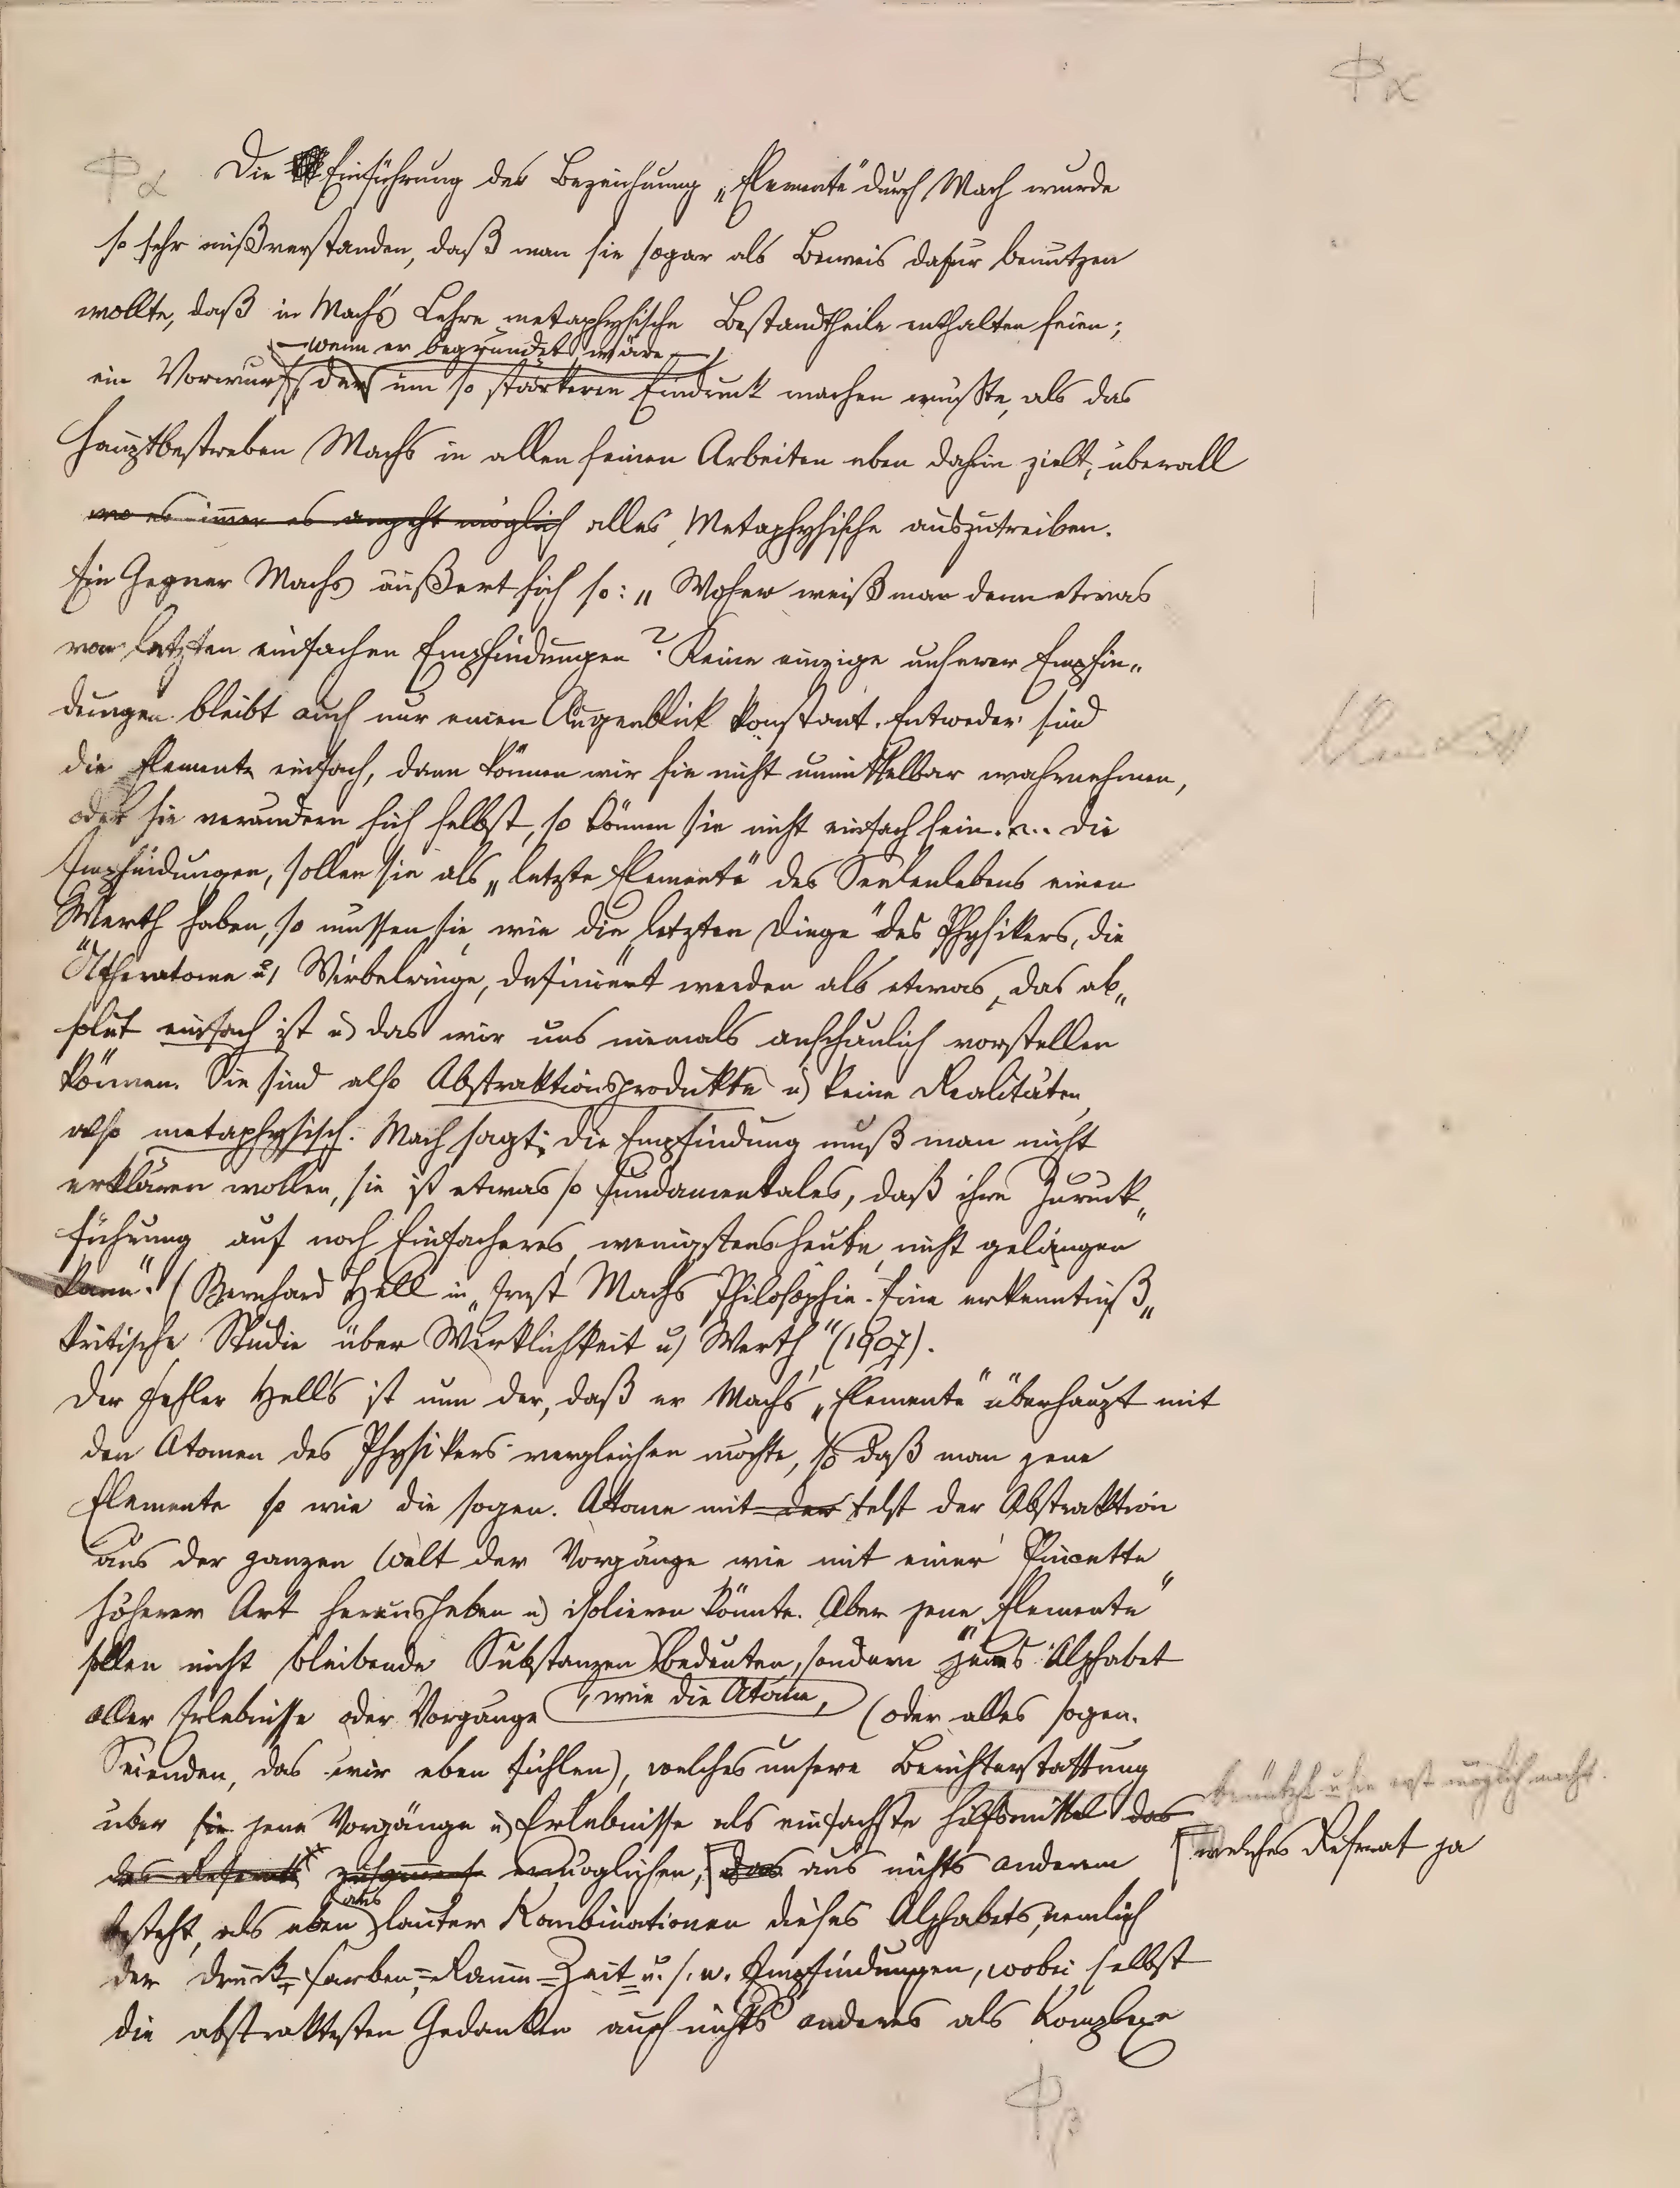 Φα
Φα Die Einführung der Bezeichnung „Elemente“ durch Mach wurde
so sehr mißverstanden, daß man sie sogar als Beweis dafür benutzen
wollte, daß in Mach's Lehre metaphysische Bestandtheile enthalten seien;
— wenn er begründet wäre —
ein Vorwurf, der um so stärkeren Eindruck machen müßte, als das
Hauptbestreben Machs in allen seinen Arbeiten eben dahin zielt, überall
wo es immer es angeht möglich alles Metaphysische auszutreiben.
Ein Gegner Machs äußert sich so: „Woher weiß man denn etwas
von letzten einfachen Empfindungen? Keine einzige unserer Empfin„
dungen bleibt auch nur einen Augenblick konstant. Entweder sind
die Elemente einfach, dann können wir sie nicht unmittelbar wahrnehmen,
oder sie verändern sich selbst, so können sie nicht einfach sein. ... Die
Empfindungen, sollen sie als „letzte Elemente“ des Seelenlebens einen
Werth haben, so müssen sie, wie die „letzten Dinge“ des Physikers, die
Ätheratome u) Wirbelringe, definiert werden als etwas, das ab„
solut einfach ist u) das wir uns niemals anschaulich vorstellen
können. Sie sind also Abstraktionsprodukte u) keine Realitäten,
also metaphysisch. Mach sagt: die Empfindung muß man nicht
erklären wollen, sie ist etwas so fundamentales, daß ihre Zurück„
führung auf noch Einfacheres, wenigstens heute, nicht gelingen
kann“. (Bernhard Hell in „Ernst Machs Philosophie. Eine erkenntniß„
kritische Studie über Wirklichkeit u) Werth“ (1907).
Der Fehler Hell's ist nun der, daß er Mach's „Elemente“ überhaupt mit
den Atomen des Physikers vergleichen möchte, so daß man jene
Elemente so wie die sogen. Atome mit der telst der Abstraktion
aus der ganzen Welt der Vorgänge wie mit einer Pincette
höherer Art herausheben u) isolieren könnte. Aber jene „Elemente“
sollen nicht bleibende Substanzen bedeuten, sondern jenes Alphabet
, wie die Atome,
aller Erlebnisse oder Vorgänge (oder alles sogen.
Seienden, das wir eben fühlen), welches unsere Berichterstattung
benützt u sie erst möglich macht.
über sie jene Vorgänge u) Erlebnisse als einfachste Hilfsmittel das
des Referats ermöglichen, das aus nichts anderem
welches Referat ja
aus
besteht, als eben lauter Kombinationen dieses Alphabets, nemlich
der Druck-, Farben-, Raum-Zeit- u. s. w. Empfindungen, wobei selbst
die abstraktesten Gedanken auch nichts anderes als Komplexe
Φβ